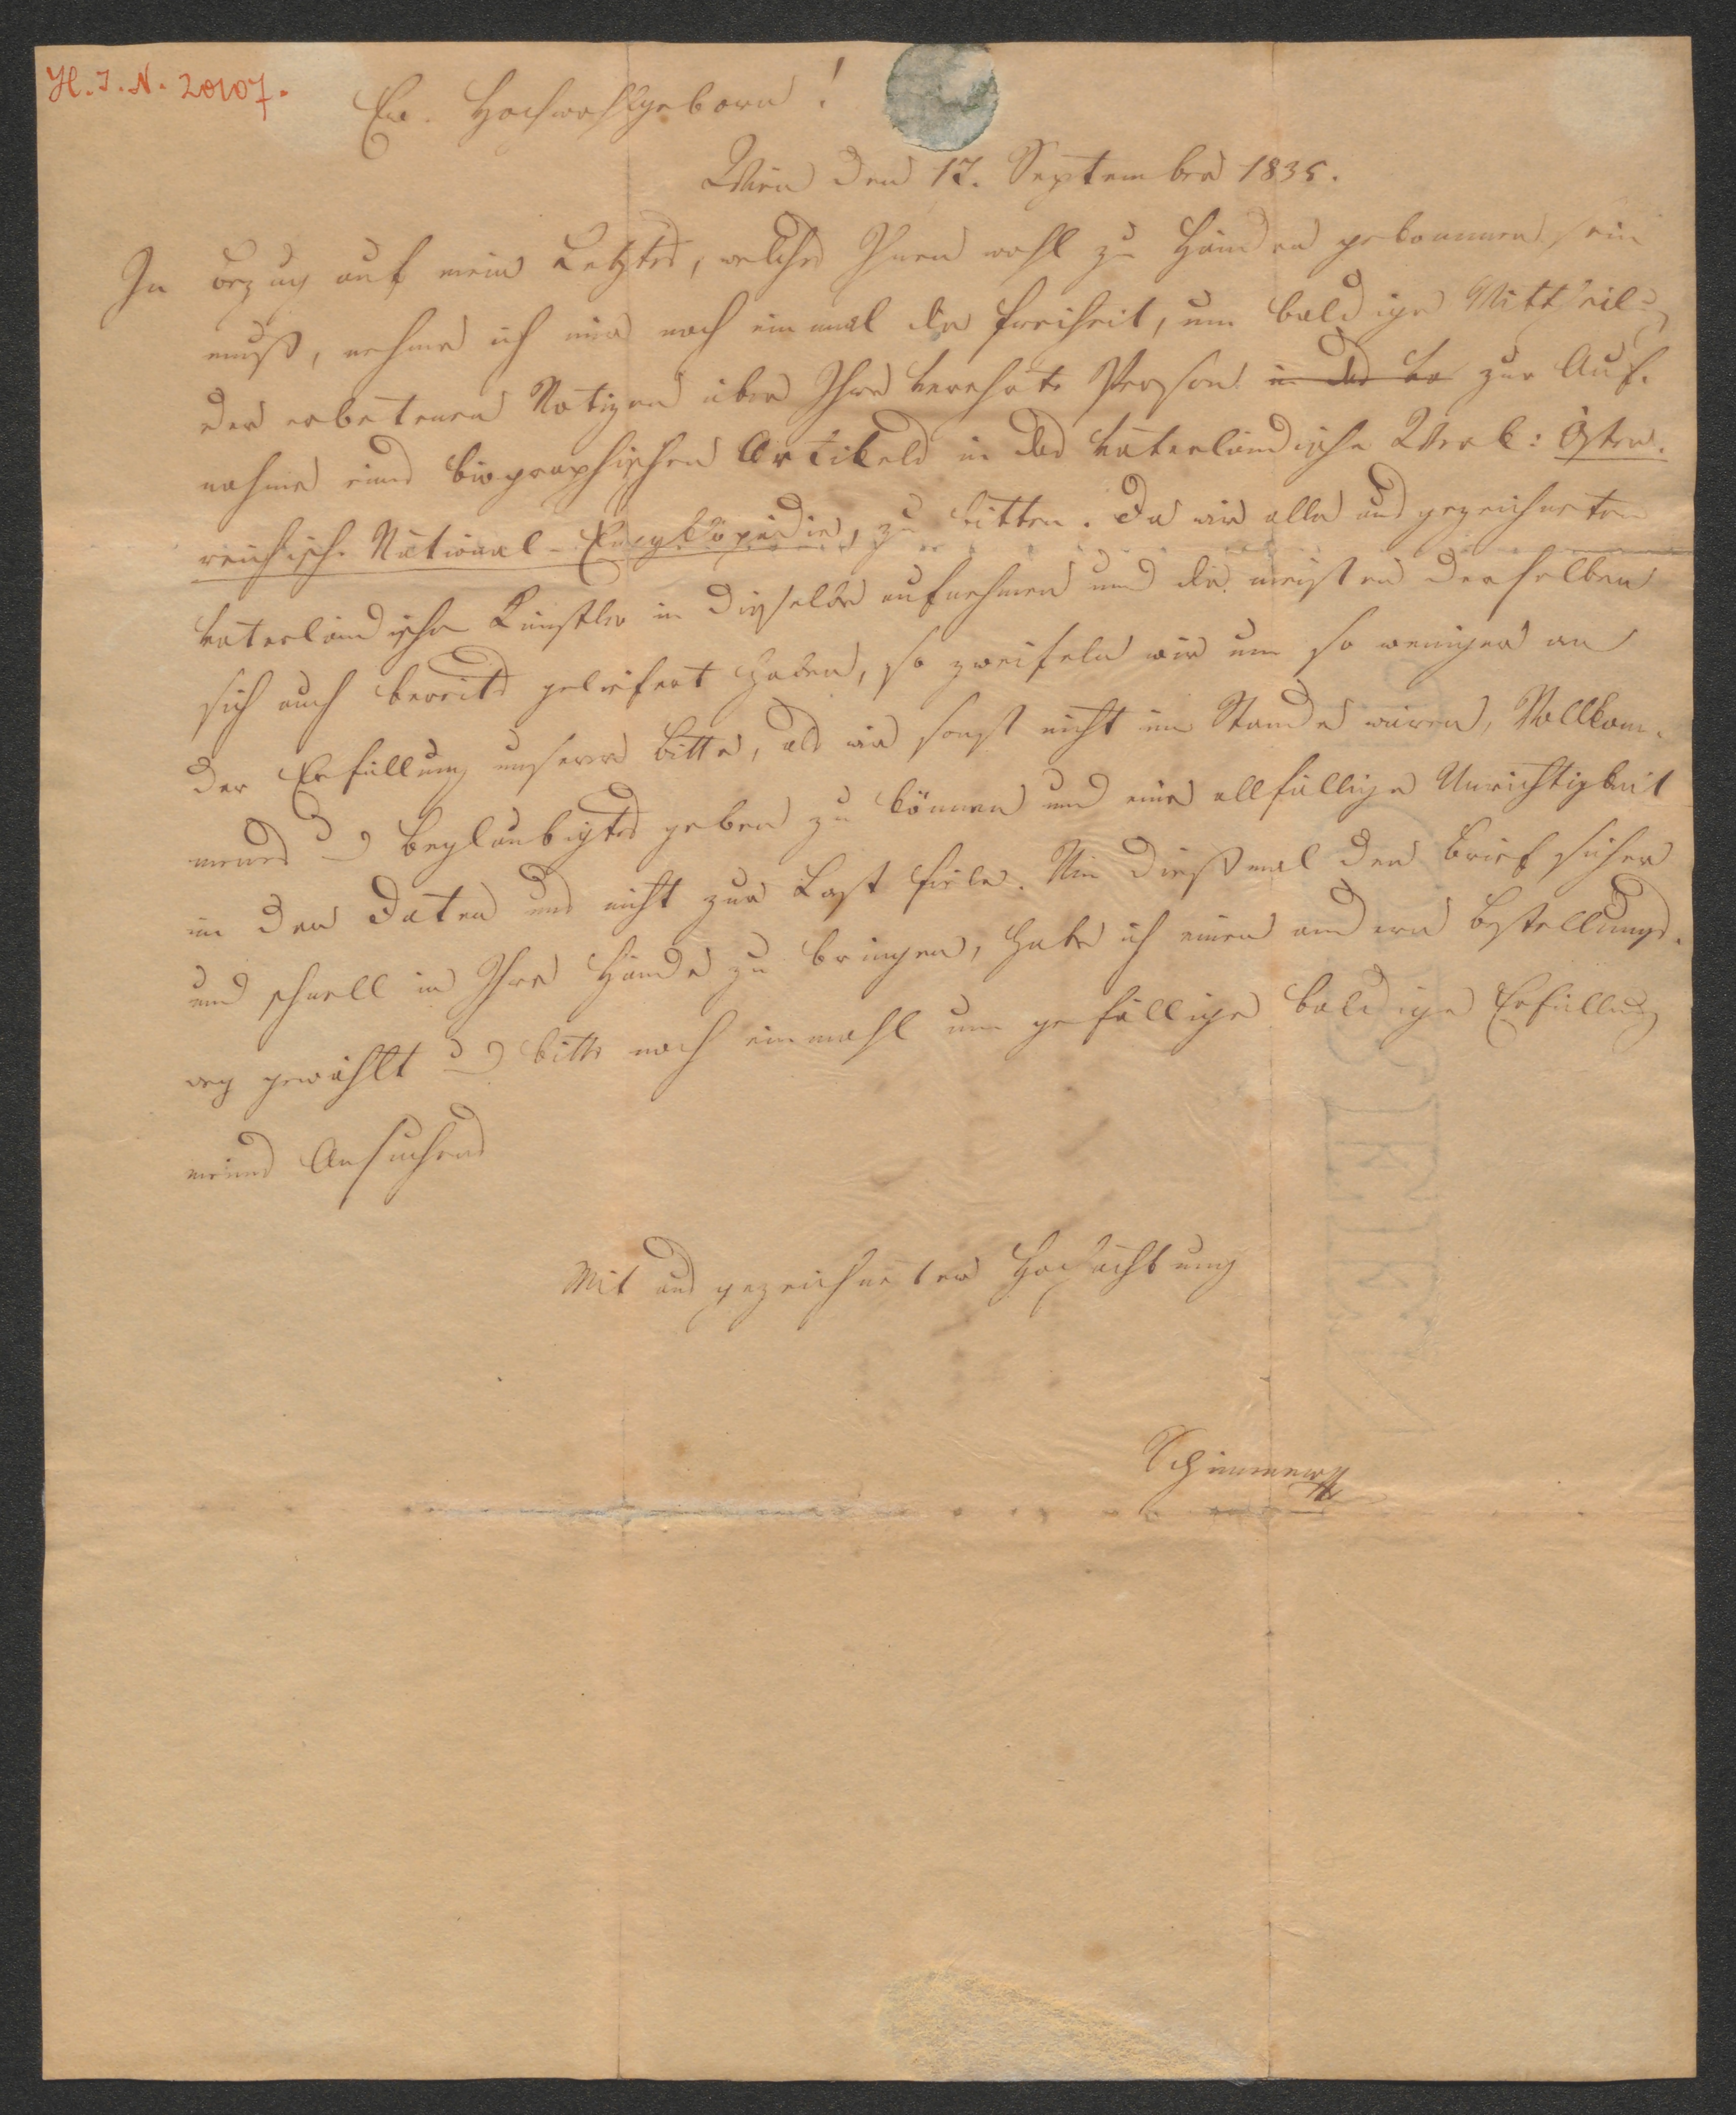 H. I. N. 20107.
Ew. Hochwohlgeborn!
Wien den 17. September 1835.
In Bezug auf mein Letztes, welches Ihnen wohl zu Händen gekommen sein
muß, nehme ich mir noch einmal die Freiheit, um baldige Mittheilg
der erbetenen Notizen über Ihre verehrte Person in das va zur Auf-
nahme eines biographischen Artikels in das vaterländische Werk: Öster-
reichische National-Encyklopädie, zu bitten. Da wir alle ausgezeichneten
vaterländische Künstler in dieselbe aufnehmen und die meisten derselben
sich auch bereits geliefert haben, so zweifeln wir um so weniger an
der Erfüllung unserer Bitte, als wir sonst nicht im Stande wären, Vollkom-
menes u Beglaubigtes geben zu können und eine allfällige Unrichtigkeit
in den Daten uns nicht zur Last fiele. Um dießmal den Brief sicher
und schnell in Ihre Hände zu bringen, habe ich einen andern Bestellungs-
weg gewählt u bitte noch einmahl um gefällige baldige Erfüllung
meines Ansuchens
Mit ausgezeichneter Hochachtung
Schimmer